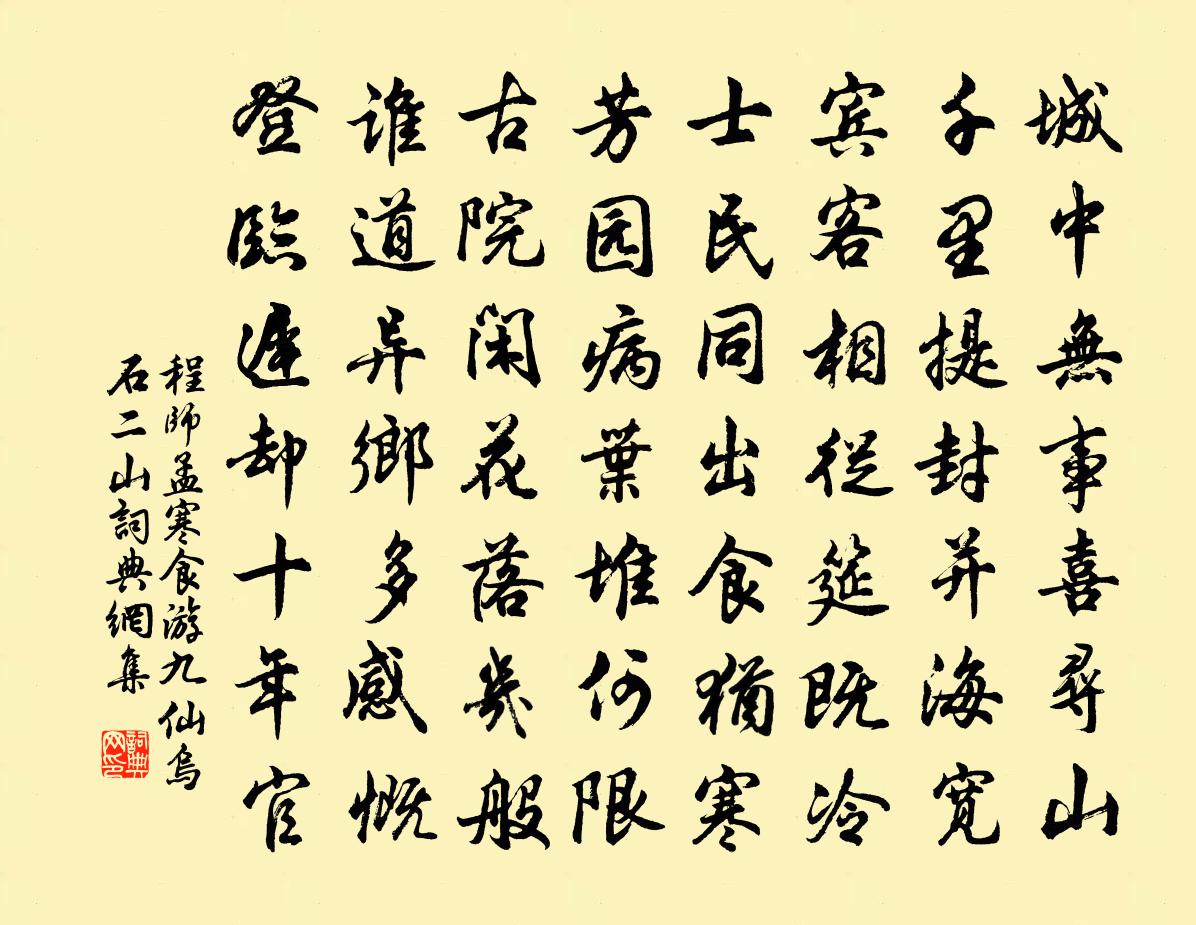 城中無事喜尋山
千里提封并海寬
宾客相從筵既冷
士民同出食猶寒
芳园病葉堆何限
古院閑花落幾般
谁道异鄉多感慨
登臨遲却十年官
程師孟寒食游九仙烏
石二山詞典網集
詞典网印